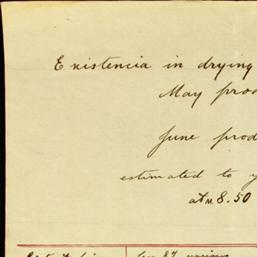 Existencia in drying
May prod
June prod
estimated to y
at M. 8.50